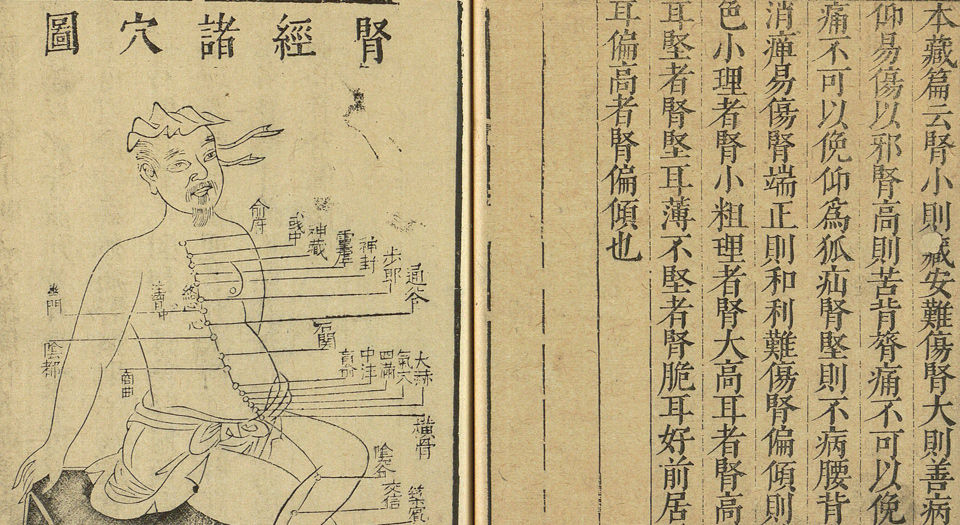 本藏篇云腎小則藏安難傷腎大則善病
仰易傷以邪腎高則苦背膂痛不可以俛
痛不可以俛仰為狐疝腎堅則不病腰背
消癉易傷腎端正則和利難傷腎偏傾則
色小理者腎小粗理者腎大高耳者腎高
耳堅者腎堅耳薄不堅者腎脆耳好前居
耳偏高者腎偏傾也
腎經諸穴圖
俞府
彧中
神藏
靈墟
神封
步郎
通谷
幽門
陰都
石關
商曲
肓俞
中注
四滿
氣穴
大赫
橫骨
陰谷
交信
築賓